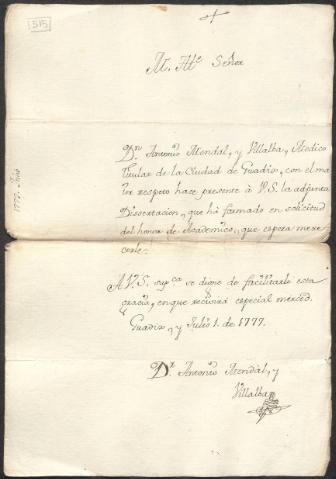 515
M. Ille. Señor
Dn. Antonio Mendal, y Villalba, Medico
titular de la Ciudad de Guadix, con el ma
ior respeto hace presente à V.S. la adjunta
Dissertacion, que há formado en solicitud
del honor de Academico, que espera mere
cerle:
A V.S. supca. se digne de facilitarle esta
gracia, en que recivirá especial merced.
Guadix, y Julio 1. de 1777.
Dr. Antonio Mendal, y
Villalba
1777.